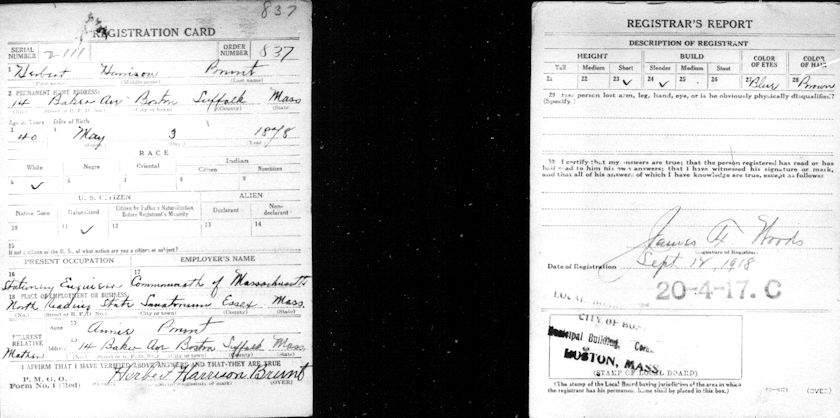 837
REGISTRATION CARD
SERIAL NUMBER 2111 ORDER NUMBER 837
1 Herbert Harrison Brunt
(First name) (Middle name) (Last name)
2 PERMANENT HOME ADDRESS:
14 Baker Ave Boston Suffolk Mass
(No.) (Street or R. F. D. No.) (City or town) (County) (State)
Age in Years Date of Birth
3 40 4 May 3 1878
(Month) (Day) (Year)
RACE
White Negro Oriental Indian
Citizen Noncitizen
5 ✓ 6 7 8 9
U. S. CITIZEN ALIEN
Native Born Naturalized Citizen by Father's Naturalization Before Registrant's Majority Declarant Non-declarant
10 11 ✓ 12 13 14
15
If not a citizen of the U. S., of what nation are you a citizen or subject?
PRESENT OCCUPATION EMPLOYER'S NAME
16 Stationary Engineer 17 Commonwealth of Massachusetts
18 PLACE OF EMPLOYMENT OR BUSINESS:
North Reading State Sanatorium Essex Mass.
(No.) (Street or R. F. D. No.) (City or town) (County) (State)
NEAREST RELATIVE Name 19 Annie Brunt
Mother Address 20 14 Baker Ave Boston Suffolk Mass
(No.) (Street or R. F. D. No.) (City or town) (County) (State)
I AFFIRM THAT I HAVE VERIFIED ABOVE ANSWERS AND THAT THEY ARE TRUE
P. M. G. O.
Form No. 1 (Red) Herbert Harrison Brunt
(Registrant's signature or mark) (OVER)
REGISTRAR'S REPORT
DESCRIPTION OF REGISTRANT
HEIGHT BUILD COLOR OF EYES COLOR OF HAIR
Tall Medium Short Slender Medium Stout
21 22 23 ✓ 24 ✓ 25 26 27 Blue 28 Brown
29 Has person lost arm, leg, hand, eye, or is he obviously physically disqualified?
(Specify.)
30 I certify that my answers are true; that the person registered has read or has
had read to him his own answers; that I have witnessed his signature or mark,
and that all of his answers of which I have knowledge are true, except as follows:
James F. Woods
(Signature of Registrar)
Date of Registration Sept 12, 1918
LOCAL
20-4-17. C
CITY OF BOS
Municipal Building,
BOSTON, MASS.
(STAMP OF LOCAL BOARD)
(The stamp of the Local Board having jurisdiction of the area in which
the registrant has his permanent home shall be placed in this box.)
(OVER)